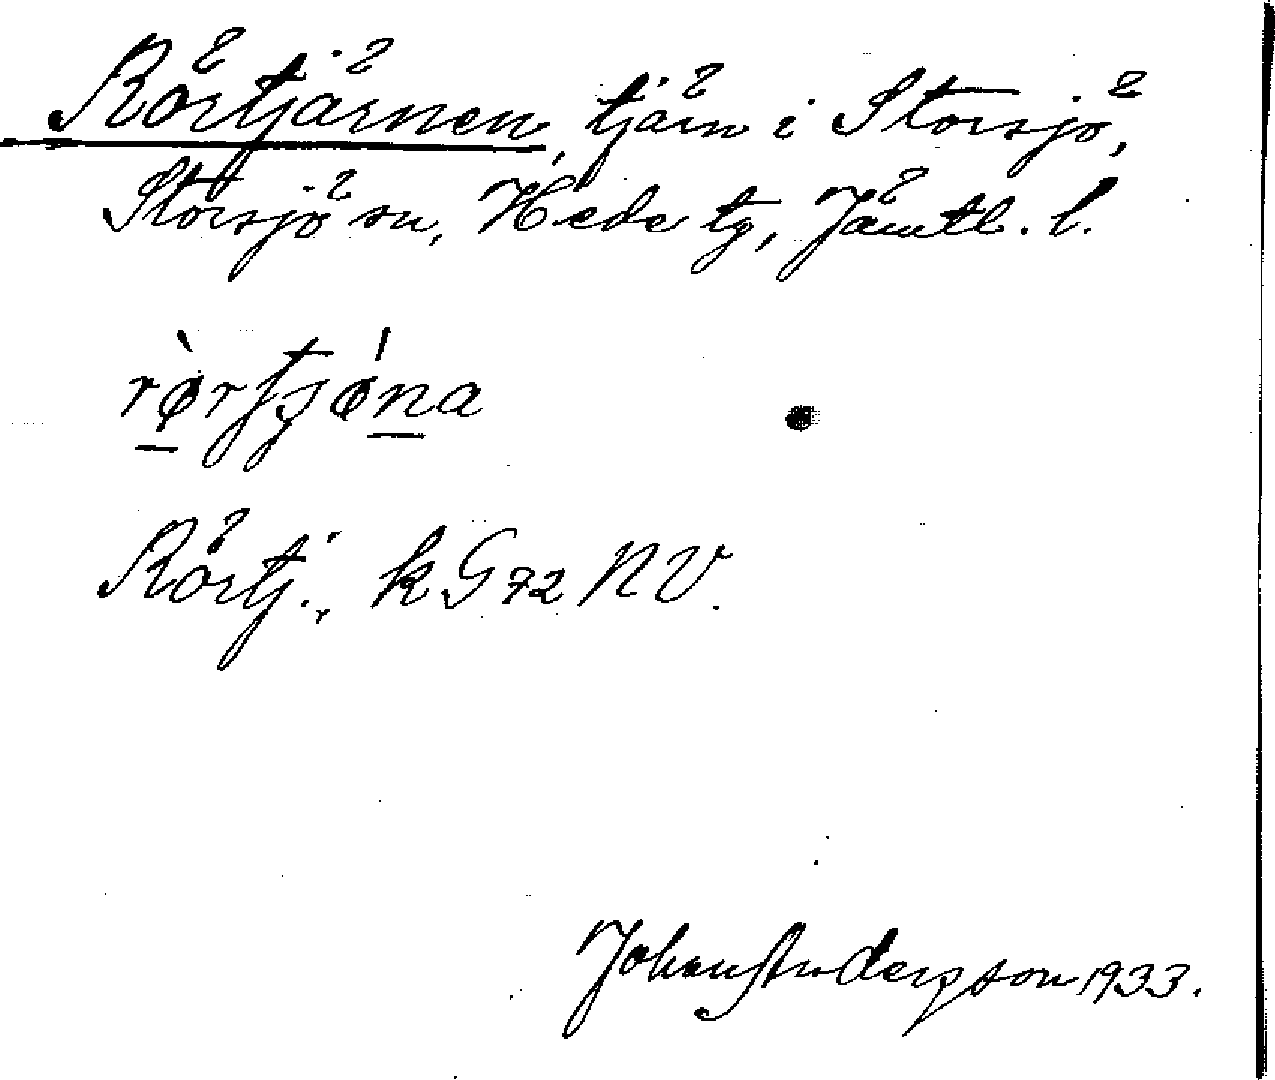 Rörtjärnen, tjärn i Storsjö,
Storsjö sn, Hede tg, Jämtl. l.
rø̀rtjǿna
Rörtj., k G 72 NV.
Johan Andersson 1933.